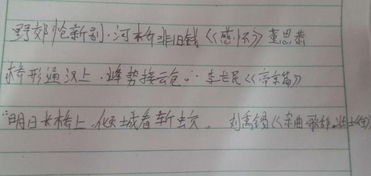 野郊怆新别，河桥非旧饯《感怀》董思恭
桥形通汉上，峰势接云危。李世民《帝京篇》
明日长桥上，倾城看斩蛟。刘禹锡《杂曲歌辞